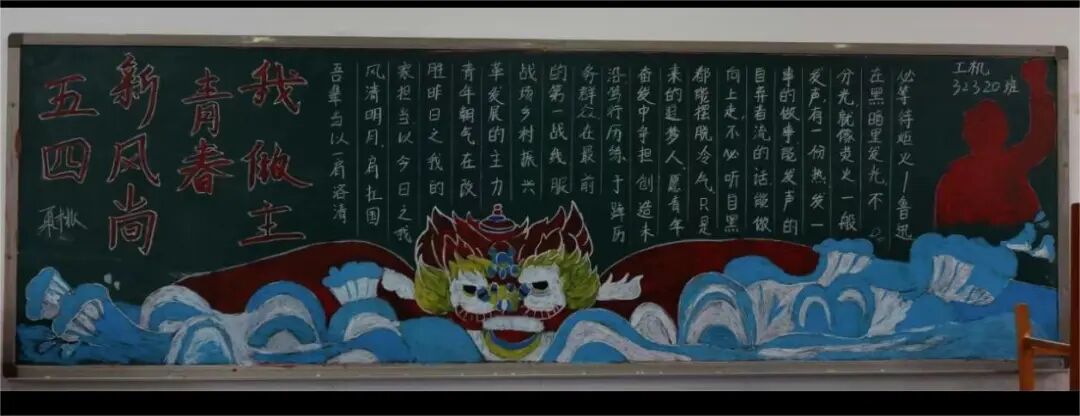 五四
新风尚
青春
我做主
吾辈当以一肩洛清
风清明月,肩扛国
家担当以今日之我
胜昨日之我的
青年朝气在改
革发展的主力
战场乡村振兴
的第一战线服
务群众在最前
沿笃行历练,于踔厉
奋发中争担创造未
来的追梦人.愿青年
都能摆脱冷气,只是
向上走,不必听自黑
自弃者流的话.能做
事的做事能发声的
发声,有一份热发一
分光,就像萤火一般
在黑暗里发光,不
必等待炬火—鲁迅
工机
32320班